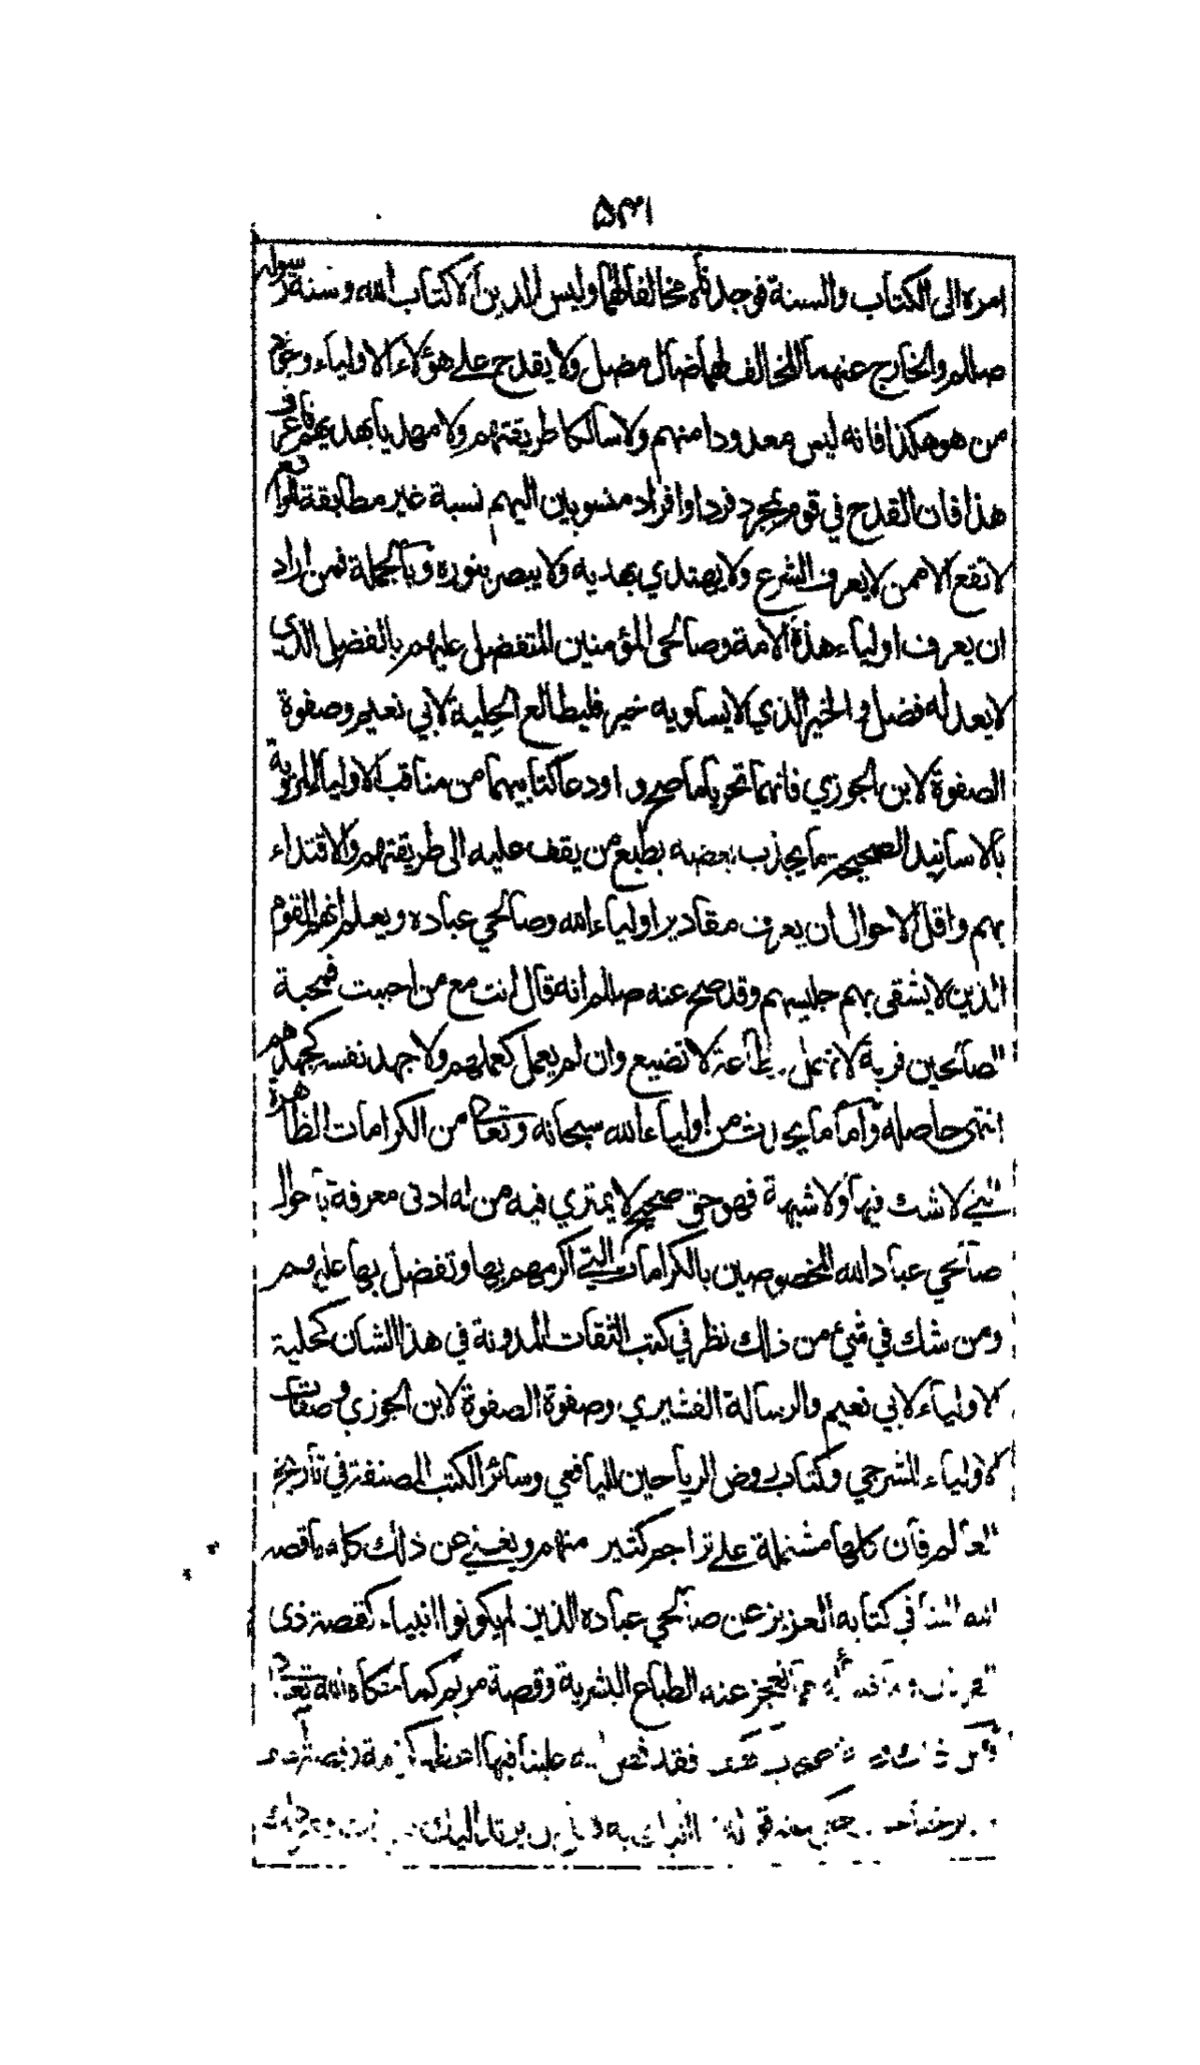 ۵۳۱
امره الى الكتاب والسنة فوجدته مخالفا لهما وليس الدين الا كتاب الله وسنة رسوله
صللم والخارج عنهما المخالف لهما ضال مضل ولا يقدح على هؤلاء الاولياء وجود
من هو هكذا فانه ليس معدودا منهم ولا سالكا طريقتهم ولا مهديا بهديهم فاعرف
هذا فان القدح في قوم بمجرد فرد او افراد منسوبين اليهم نسبة غير مطابقة للواقع
لا تقع الا ممن لا يعرف الشرع ولا يهتدي بهديه ولا يبصر بنوره وبالجملة فمن اراد
ان يعرف اولياء هذه الامة وصالحي المؤمنين المتفضل عليهم بالفضل الذي
لا يعدله فضل والخير الذي لا يساويه خير فليطالع الحلية لابي نعيم وصفوة
الصفوة لابن الجوزي فانهما تحريا ما صح واودعا كتابيهما من مناقب الاولياء المروية
بالاسانيد الصحيحة ما يجذب بعضه بطبع من يقف عليه الى طريقتهم والاقتداء
بهم واقل الاحوال ان يعرف مقادير اولياء الله وصالحي عباده ويعلم انهم القوم
الذين لا يشقى بهم جليسهم وقد صح عنه صللم انه قال انت مع من احببت فمحبة
الصالحين قربة لا تهمل وطاعة لا تضيع وان لم يعمل كعملهم ولا جهد نفسه كجهدهم
انتهى حاصله واما ما يحدث من اولياء الله سبحانه وتعالى من الكرامات الظاهرة
التي لا شك فيها ولا شبهة فهو حق صحيح لا يمتري فيه من له ادنى معرفة باحوال
صالحي عباد الله المخصوصين بالكرامات التي اكرمهم بها وتفضل بها عليهم
ومن شك في شيء من ذلك نظر في كتب الثقات المدونة في هذا الشان كحلية
الاولياء لابي نعيم والرسالة القشيري وصفوة الصفوة لابن الجوزي وصفات
الاولياء الشرجي وكتاب روض الرياحين لليافعي وسائر الكتب المصنفة في تاريخ
العالم فان كلها مشتملة على تراجم كثير منهم ويغني عن ذلك كله ما قصه
الله الينا في كتابه العزيز عن صالحي عباده الذين لم يكونوا انبياء كقصة ذى
القرنين وما تعجز عنه الطباع البشرية وقصة مريم كما حكاه الله تعالى
ذلك فقد قص علينا فيها
انا اتيك به قبل ان يرتد اليك